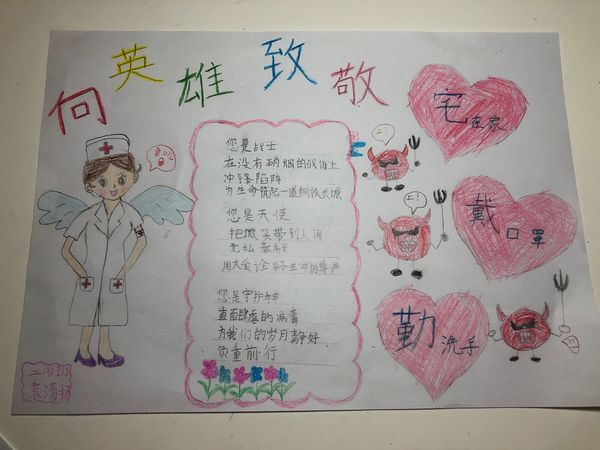 向英雄致敬
您是战士
在没有硝烟的战场上
冲锋陷阵
为生命筑起一道钢铁长城
您是天使
把微笑带到人间
无私奉献
用大爱诠释生命的尊严
您是守护神
直面肆虐的病毒
为我们的岁月静好
负重前行
宅在家
戴口罩
勤洗手
上!
上!
二(3)班